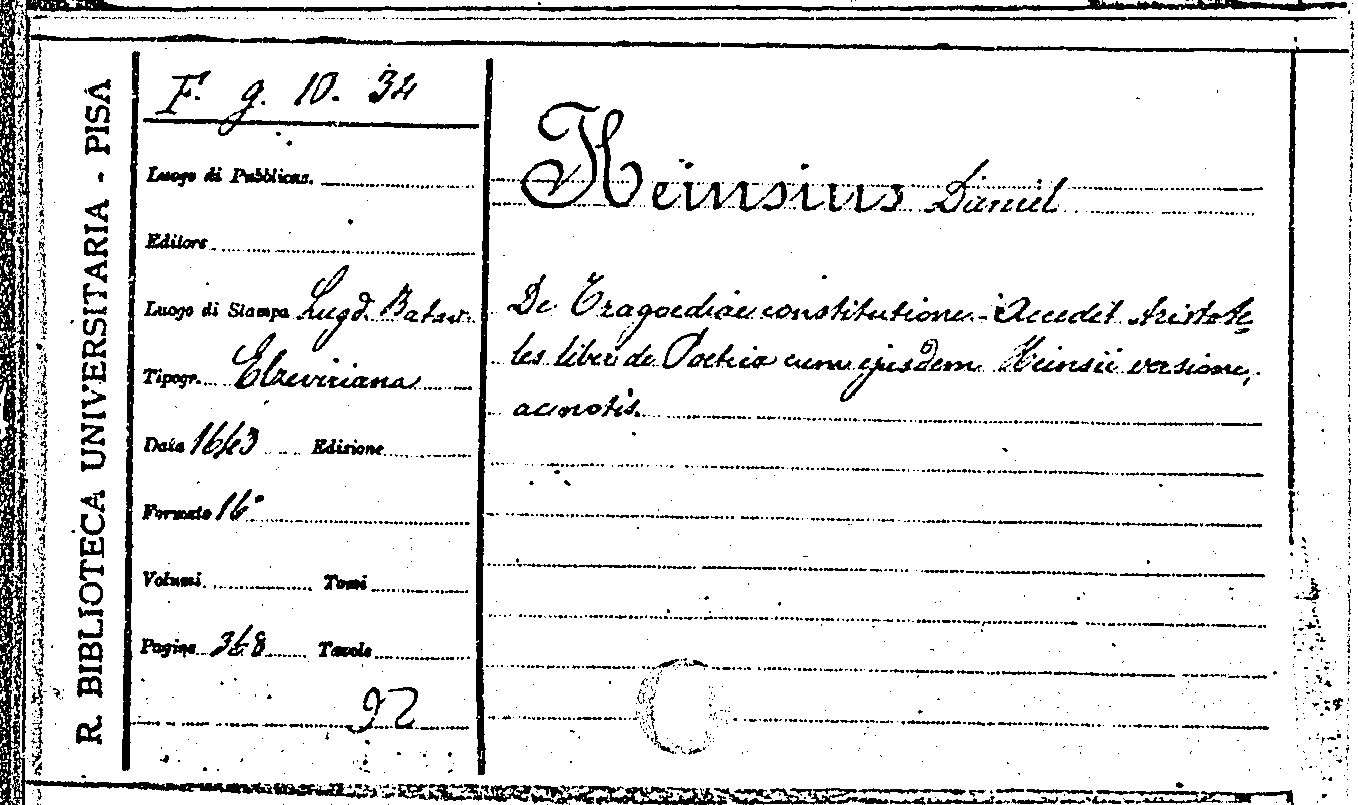 R. BIBLIOTECA UNIVERSITARIA - PISA
F. g. 10. 34
Luogo di Pubblicaz.
Editore
Luogo di Stampa Lugd. Batav.
Tipogr. Elzeviriana
Data 1643 Edizione
Formato 16°
Volumi Tomi
Pagine 368 Tavole
92
Heinsius Daniel
De Tragoediae constitutione - Accedit Aristote
les liber de Poetica cum ejusdem Heinsii versione,
ac notis.